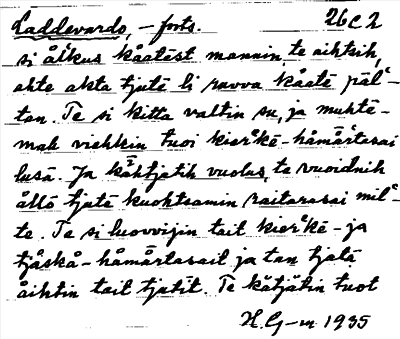 Laddevardo, – forts. 26c2
si ålkus kåatést mannin, te aihtsih,
ahte akta tjuté li ravva kåaté pál'-
tan. Te si kitta valtin su, ja muhté-
mah viehkin tuoi kier'ké-håmårtasai
lusá. Ja kähtjatih vuolus, te vuoidnih
ållo tjuté kuohteamin raitarasai mil'-
te. Te si luovvigin tait kier'ké- ja
tjåskå-håmårtasait ja tan tjatá
åihtin tait tjutit. Te kätjátin tuot
H.G-m 1935